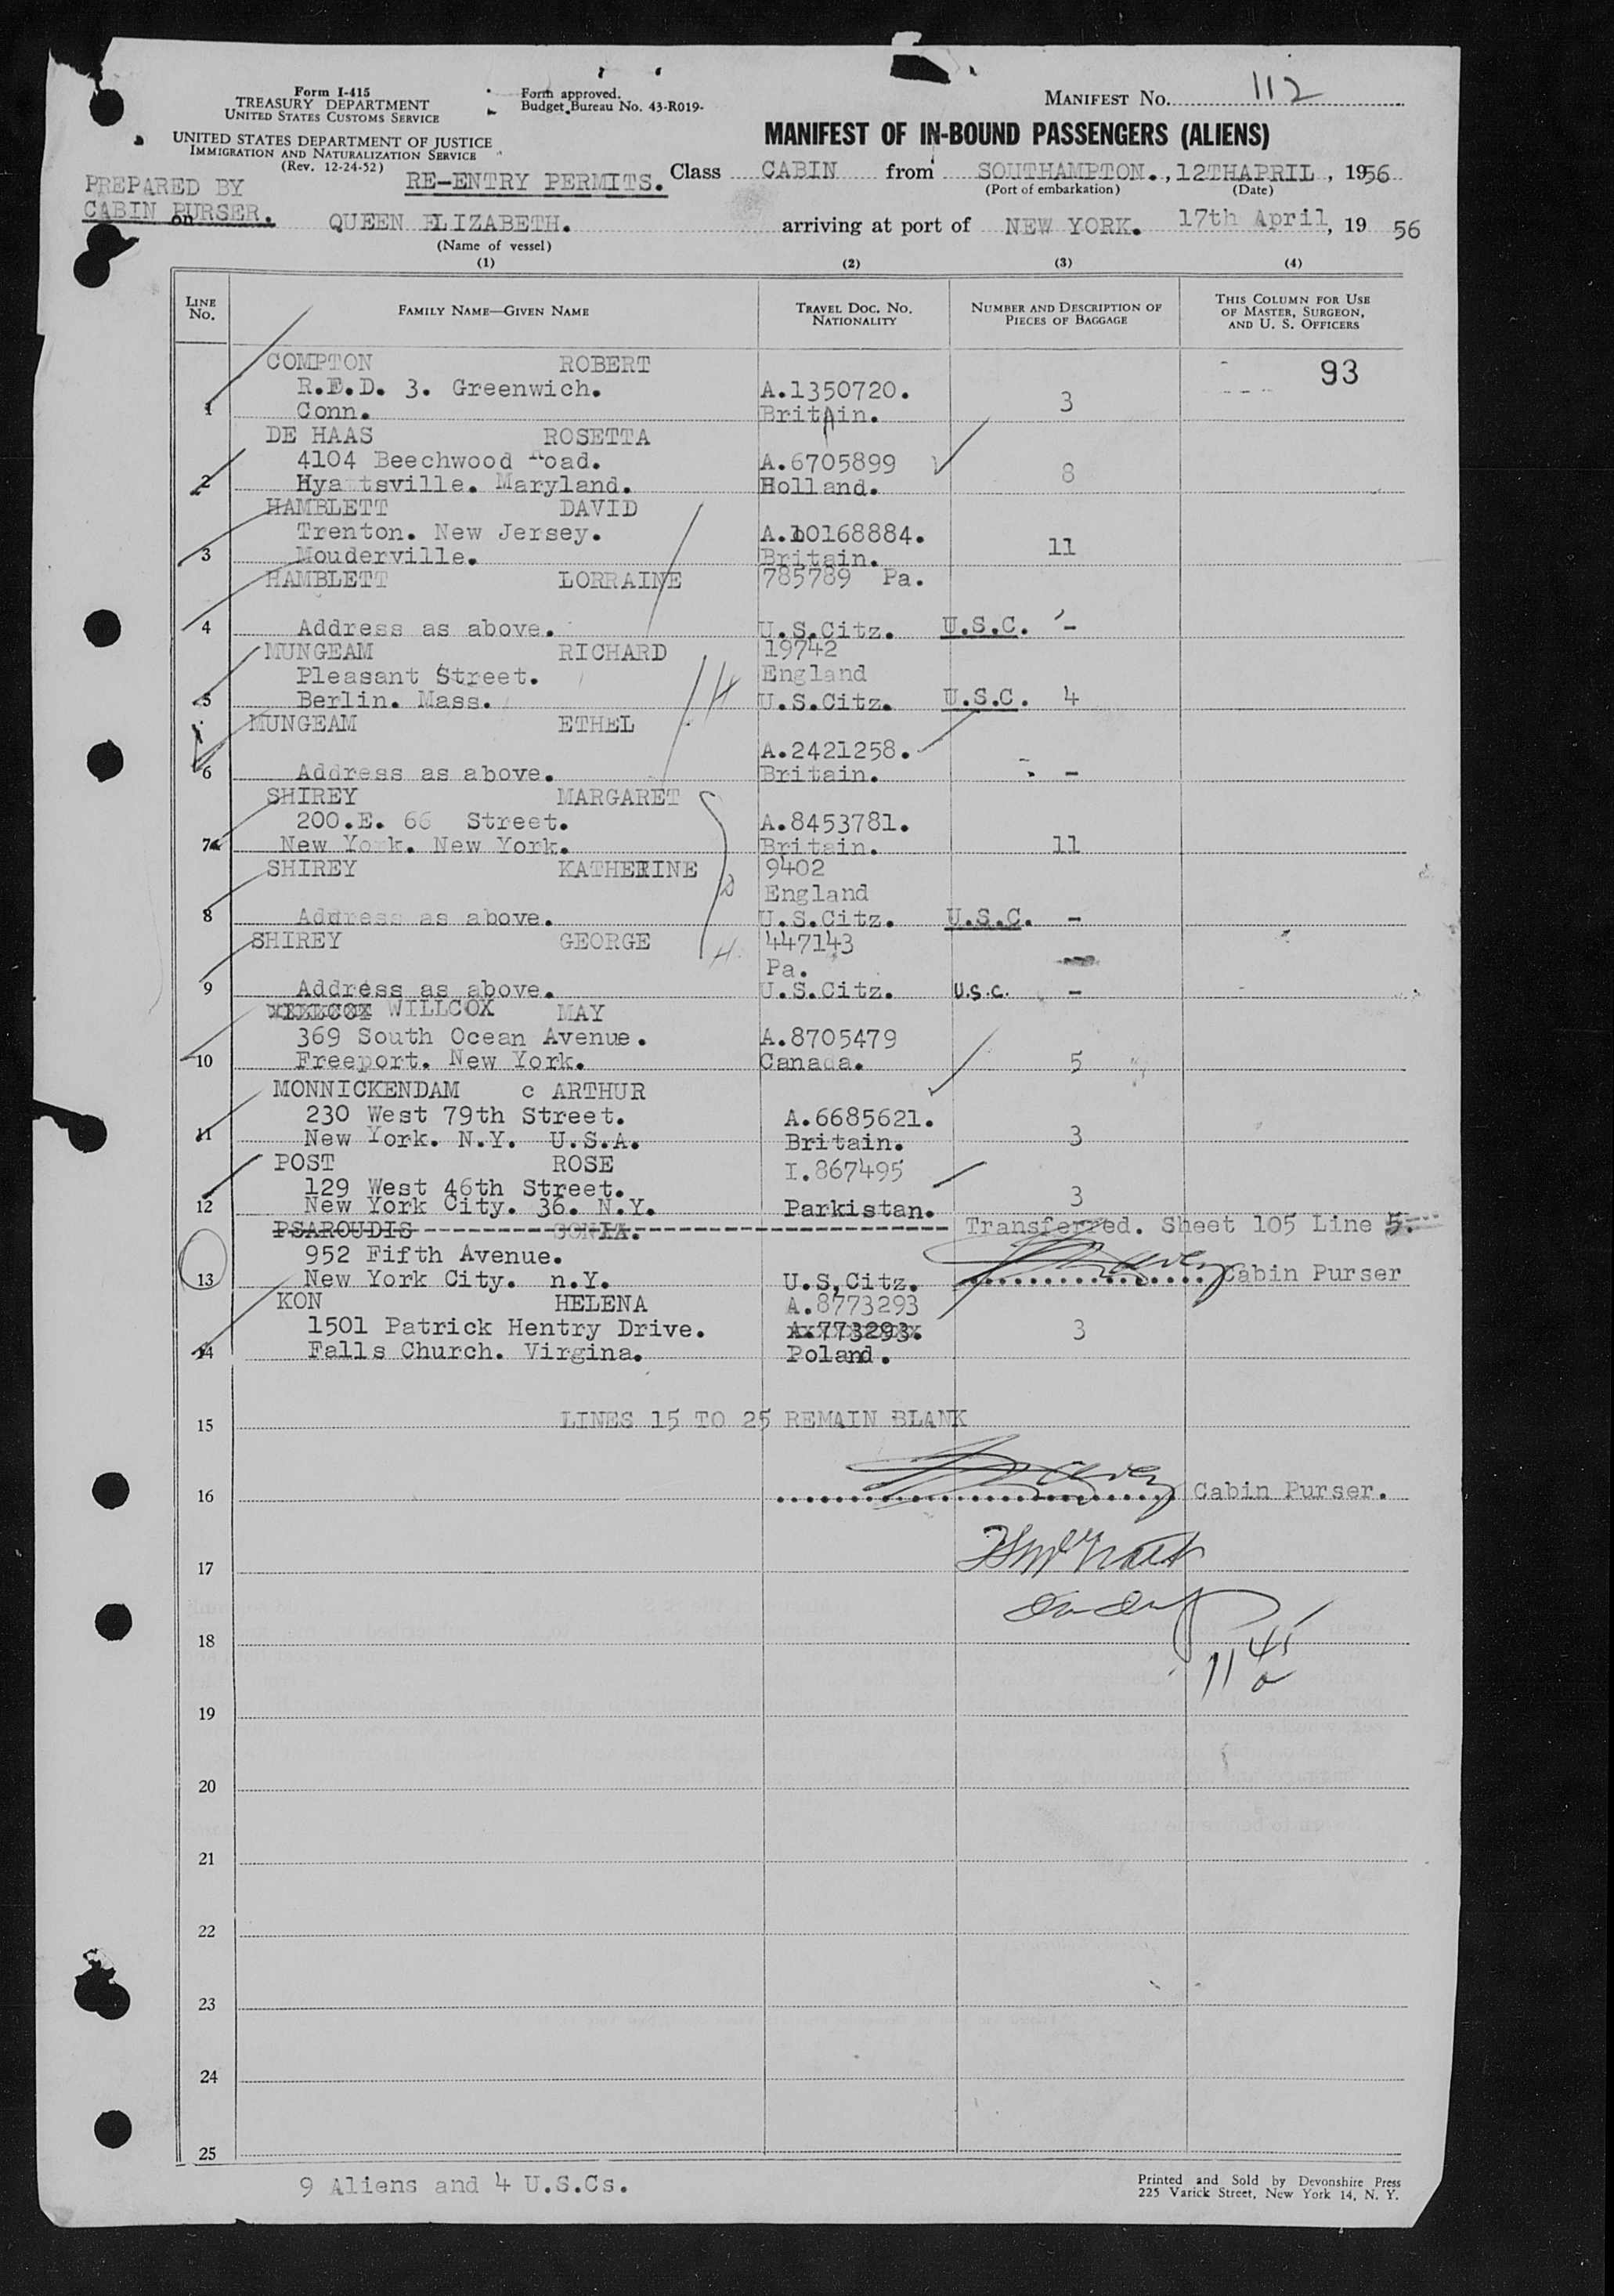 Form I-415
TREASURY DEPARTMENT
UNITED STATES CUSTOMS SERVICE
UNITED STATES DEPARTMENT OF JUSTICE
IMMIGRATION AND NATURALIZATION SERVICE
(Rev. 12-24-52)
Form approved.
Budget Bureau No. 43-R019-
MANIFEST No. 112
MANIFEST OF IN-BOUND PASSENGERS (ALIENS)
PREPARED BY
CABIN PURSER.
RE-ENTRY PERMITS. Class CABIN from SOUTHAMPTON., 12THAPRIL, 1956
(Port of embarkation) (Date)
on QUEEN ELIZABETH. arriving at port of NEW YORK. 17th April, 19 56
(Name of vessel)
(1) (2) (3) (4)
LINE No. FAMILY NAME—GIVEN NAME TRAVEL DOC. No. NATIONALITY NUMBER AND DESCRIPTION OF PIECES OF BAGGAGE THIS COLUMN FOR USE OF MASTER, SURGEON, AND U. S. OFFICERS
COMPTON ROBERT 93
R.E.D. 3. Greenwich. A.1350720.
1 Conn. Britain. 3
DE HAAS ROSETTA
4104 Beechwood Road. A.6705899
2 Hyattsville. Maryland. Holland. 8
HAMBLETT DAVID
Trenton. New Jersey. A.10168884.
3 Mouderville. Britain. 11
HAMBLETT LORRAINE 785789 Pa.
4 Address as above. U.S.Citz. U.S.C. -
MUNGEAM RICHARD 19742
Pleasant Street. England
5 Berlin. Mass. U.S.Citz. U.S.C. 4
MUNGEAM ETHEL
A.2421258.
6 Address as above. Britain. -
SHIREY MARGARET
200.E. 66 Street. A.8453781.
7 New York. New York. Britain. 11
SHIREY KATHERINE 9402
England
8 Address as above. U.S.Citz. U.S.C. -
SHIREY GEORGE 447143
Pa.
9 Address as above. U.S.Citz. U.S.C. -
WILLCOX MAY
369 South Ocean Avenue. A.8705479
10 Freeport. New York. Canada. 5
MONNICKENDAM c ARTHUR
230 West 79th Street. A.6685621.
11 New York. N.Y. U.S.A. Britain. 3
POST ROSE I.867495
129 West 46th Street.
12 New York City. 36. N.Y. Parkistan. 3
PSAROUDIS SONIA. Transferred. Sheet 105 Line 5.
952 Fifth Avenue.
13 New York City. n.Y. U.S,Citz. Cabin Purser
KON HELENA A.8773293
1501 Patrick Hentry Drive. A.773293.
14 Falls Church. Virgina. Poland. 3
15 LINES 15 TO 25 REMAIN BLANK
16 Cabin Purser.
17
18
11 45 a
19
20
21
22
23
24
25
9 Aliens and 4 U.S.Cs.
Printed and Sold by Devonshire Press
225 Varick Street, New York 14, N. Y.